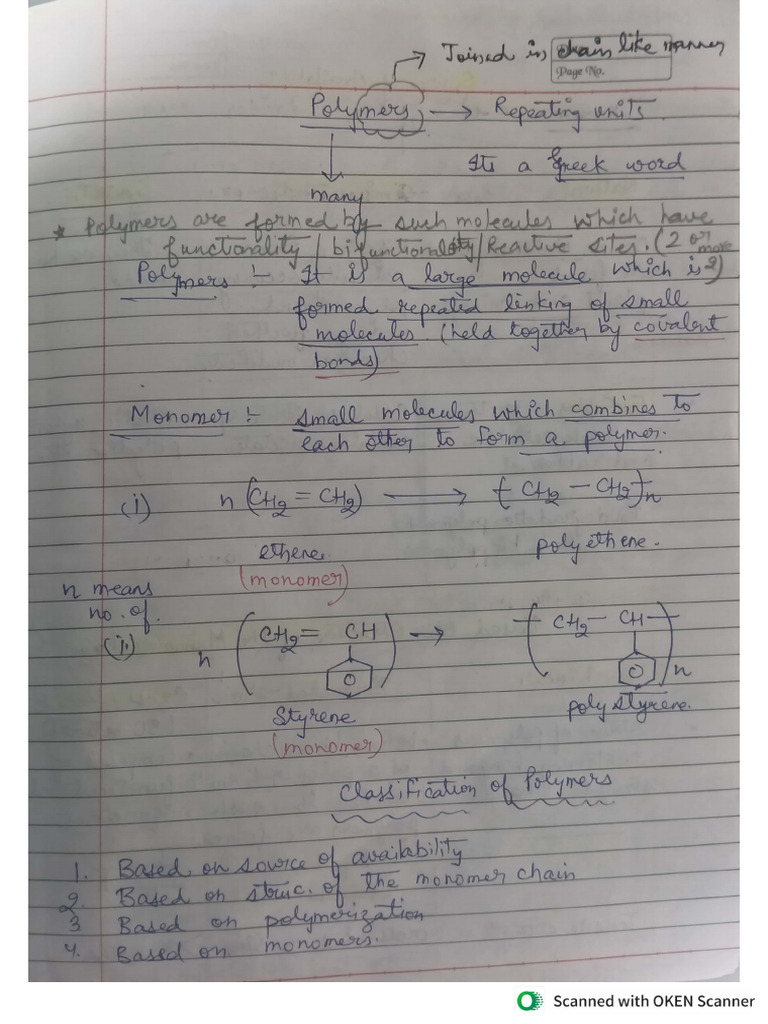 Joined in chain like manner
Page No.
Polymers → Repeating units.
Its a Greek word
many
* Polymers are formed by such molecules which have
functionality / bifunctionality / Reactive sites. (2 or more
Polymers :- It is a large molecule which is 2)
formed repeated linking of small
molecules. (held together by covalent
bonds)
Monomer :- small molecules which combines to
each other to form a polymer.
(i) n (CH2 = CH2) → -( CH2 – CH2 )-n
ethene polyethene.
(monomer)
n means
no. of.
(j.) n ( CH2 = CH ) → ( CH2 – CH )n
Styrene polystyrene.
(monomer)
Classification of Polymers
1. Based on source of availability
2. Based on struc. of the monomer chain
3 Based on polymerization
4. Based on monomers.
Scanned with OKEN Scanner